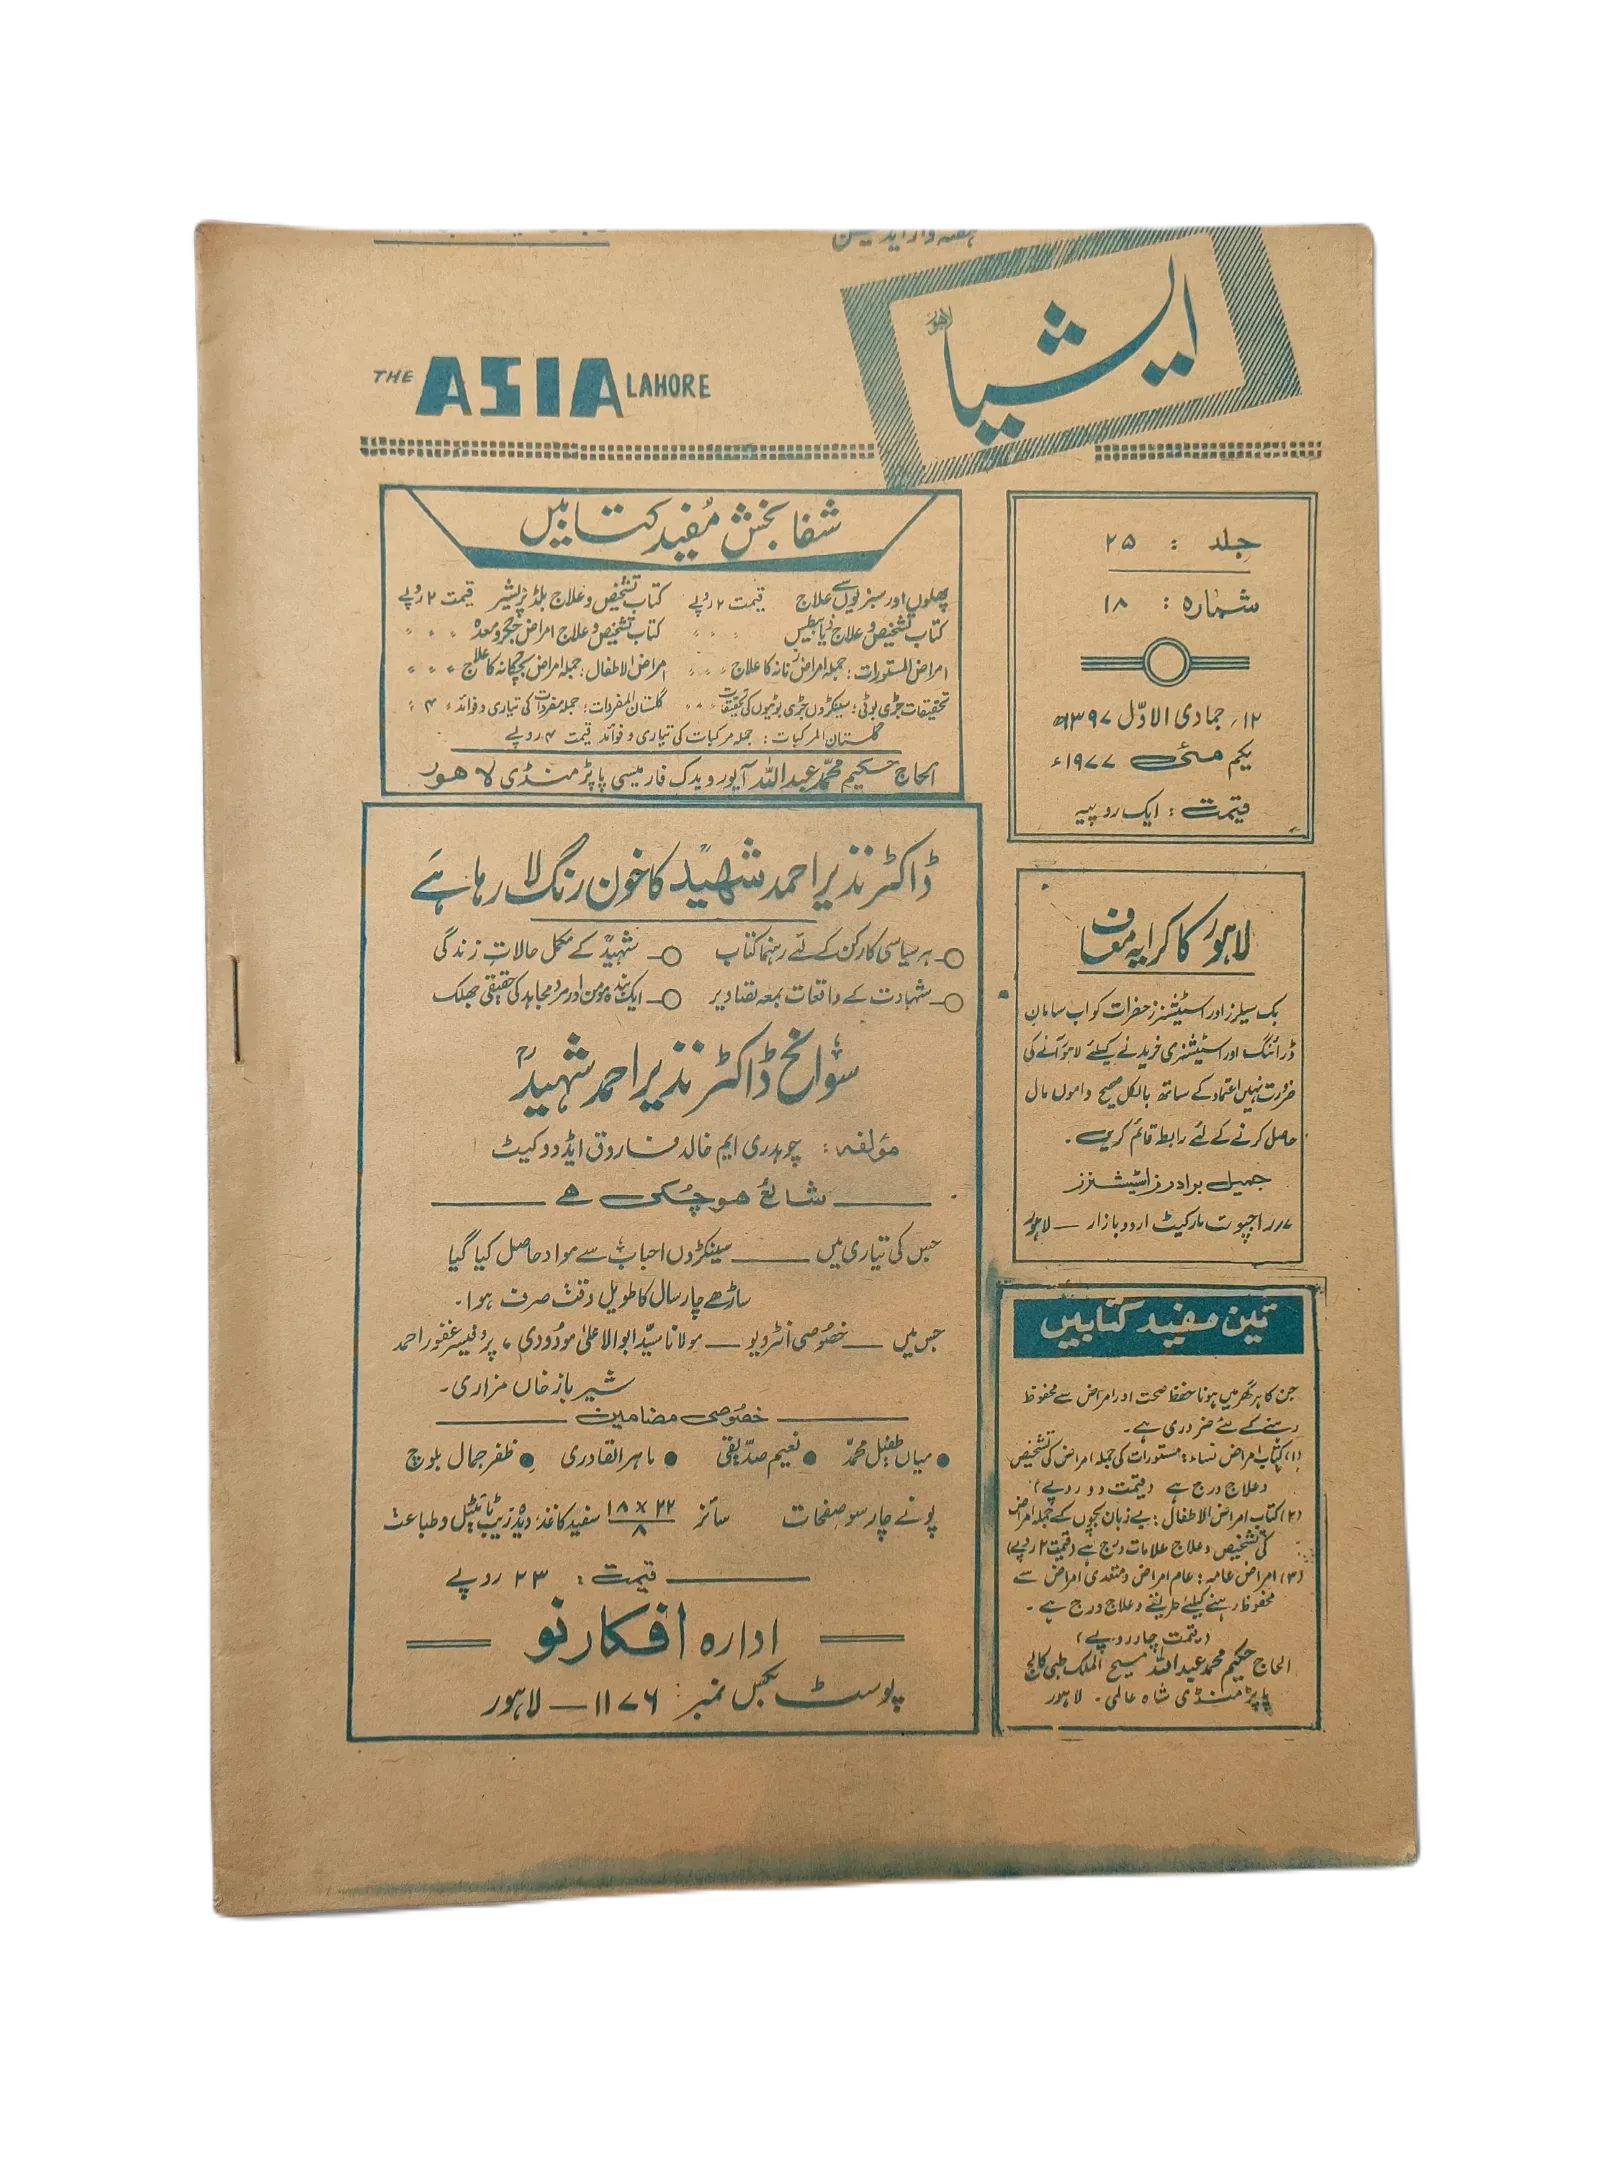 ہفتہ وار ایڈیشن
ایشیا
لاہور
THE ASIA LAHORE
جلد : ۲۵
شمارہ : ۱۸
۱۲؍ جمادی الاوّل ۱۳۹۷ھ
یکم مئی ۱۹۷۷ء
قیمت : ایک روپیہ
شفا بخش مفید کتابیں
پھلوں اور سبزیوں سے علاج قیمت ۲ روپے کتاب تشخیص و علاج بلڈ پریشر قیمت ۲ روپے
کتاب تشخیص و علاج ذیابیطیس " " " کتاب تشخیص و علاج امراض جگر و معدہ " " "
امراض المستورات : جملہ امراض زنانہ کا علاج " " " امراض الاطفال : جملہ امراض بچگانہ کا علاج " " "
تحقیقات جڑی بوٹی : سینکڑوں جڑی بوٹیوں کی تحقیقات " " گلستان المفردات : جملہ مفردات کی تیاری و فوائد " ۴ "
گلستان المرکبات : جملہ مرکبات کی تیاری و فوائد قیمت ۴ روپے
الحاج حکیم محمد عبداللہ آیورویدک فارمیسی پاپڑ منڈی لاہور
ڈاکٹر نذیر احمد شہیدؒ کا خون رنگ لا رہا ہے
ہر سیاسی کارکن کے لئے رہنما کتاب شہیدؒ کے مکمل حالاتِ زندگی
شہادت کے واقعات بمعہ تصاویر ایک بندہ مومن اور مرد مجاہد کی حقیقی جھلک
سوانح ڈاکٹر نذیر احمد شہیدؒ
مؤلفہ : چوہدری ایم خالد فاروق ایڈووکیٹ
شائع ہو چکی ہے
جس کی تیاری میں ــــ سینکڑوں احباب سے مواد حاصل کیا گیا
ساڑھے چار سال کا طویل وقت صرف ہوا۔
جس میں ــــ خصوصی انٹرویو ــــ مولانا سیّد ابوالاعلیٰ مودودی، پروفیسر غفور احمد
شیر باز خاں مزاری۔
خصوصی مضامین
● میاں طفیل محمد ● نعیم صدیقی ● ماہر القادری ● ظفر جمال بلوچ
پونے چار سو صفحات سائز ۲۲ × ۱۸ / ۸ سفید کاغذ، دیدہ زیب ٹائیٹل و طباعت
قیمت : ۲۳ روپے
ادارہ افکار نو
پوسٹ بکس نمبر : ۱۱۷۶ ـ لاہور
لاہور کا کرایہ معاف
بک سیلرز اور اسٹیشنرز حضرات کو اب سامان
ڈرائنگ اور اسٹیشنری خریدنے کیلئے لاہور آنے کی
ضرورت نہیں اعتماد کے ساتھ بالکل صحیح داموں مال
حاصل کرنے کے لئے رابطہ قائم کریں۔
جمیل برادرز اسٹیشنرز
۷؍ راجپوت مارکیٹ اردو بازار ــ لاہور
تین مفید کتابیں
جن کا ہر گھر میں ہونا حفظ صحت اور امراض سے محفوظ
رہنے کے لئے ضروری ہے۔
(۱) کتاب امراض نساء : مستورات کی جملہ امراض کی تشخیص
و علاج درج ہے (قیمت دو روپے)
(۲) کتاب امراض الاطفال : بے زبان بچوں کے جملہ امراض
کی تشخیص و علاج علامات درج ہے (قیمت ۲ روپے)
(۳) امراض عامہ : عام امراض و متعدی امراض سے
محفوظ رہنے کیلئے طریقے و علاج درج ہے۔
(قیمت چار روپے)
الحاج حکیم محمد عبداللہ مسیح الملک طبی کالج
پاپڑ منڈی شاہ عالمی۔ لاہور